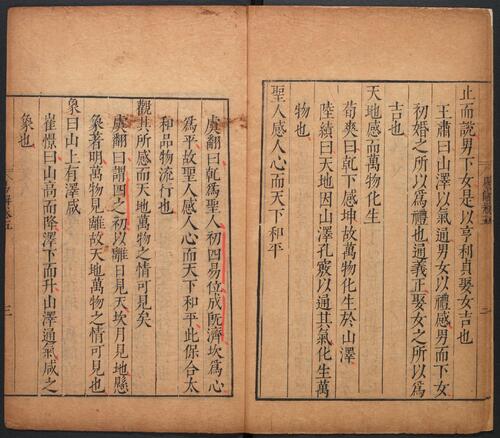 止而說男下女是以亨利貞娶女吉也
王肅曰山澤以氣通男女以禮感男而下女
初婚之所以爲禮也通義正娶女之所以爲
吉也
天地感而萬物化生
荀爽曰乾下感坤故萬物化生於山澤
陸績曰天地因山澤孔竅以通其氣化生萬
物也
聖人感人心而天下和平
虞翻曰乾爲聖人初四易位成旣濟坎爲心
爲平故聖人感人心而天下和平此保合太
和品物流行也
觀其所感而天地萬物之情可見矣
虞翻曰謂四之初以離日見天坎月見地懸
象著明萬物見離故天地萬物之情可見也
象曰山上有澤咸
崔憬曰山高而降澤下而升山澤通氣咸之
象也
三
二